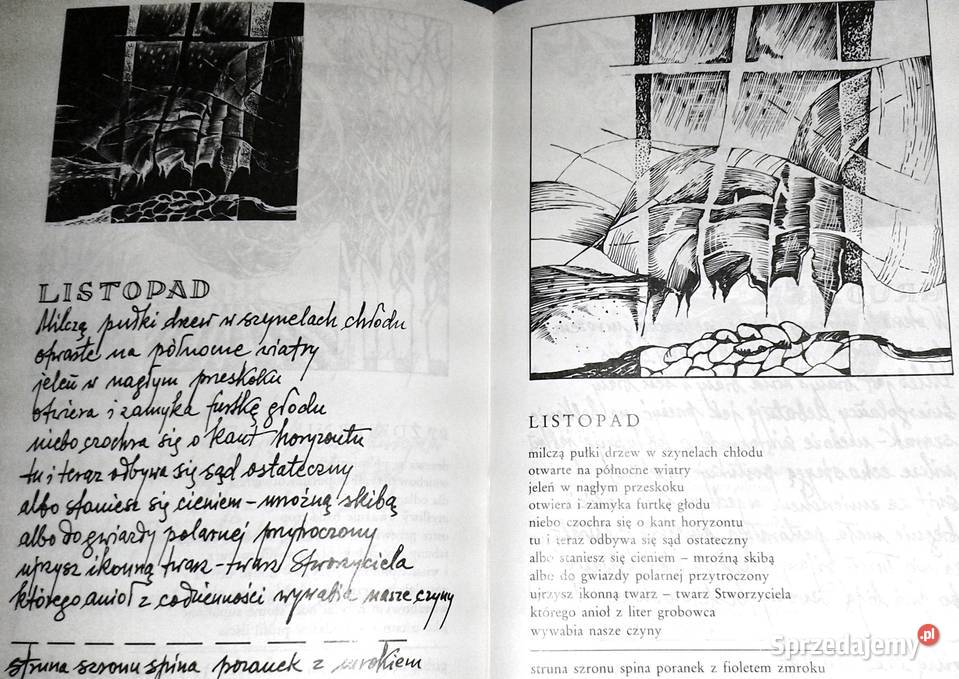 LISTOPAD
Milczą pułki drzew w szynelach chłodu
otwarte na północne wiatry
jeleń w nagłym przeskoku
otwiera i zamyka furtkę głodu
niebo czochra się o kant horyzontu
tu i teraz odbywa się sąd ostateczny
albo staniesz się cieniem – mroźną skibą
albo do gwiazdy polarnej przytroczony
ujrzysz ikonną twarz – twarz Stworzyciela
którego anioł z codzienności wywabia nasze czyny
struna szronu spina poranek z mrokiem
LISTOPAD
milczą pułki drzew w szynelach chłodu
otwarte na północne wiatry
jeleń w nagłym przeskoku
otwiera i zamyka furtkę głodu
niebo czochra się o kant horyzontu
tu i teraz odbywa się sąd ostateczny
albo staniesz się cieniem – mroźną skibą
albo do gwiazdy polarnej przytroczony
ujrzysz ikonną twarz – twarz Stworzyciela
którego anioł z liter grobowca
wywabia nasze czyny
struna szronu spina poranek z fioletem zmroku
Sprzedajemy.pl